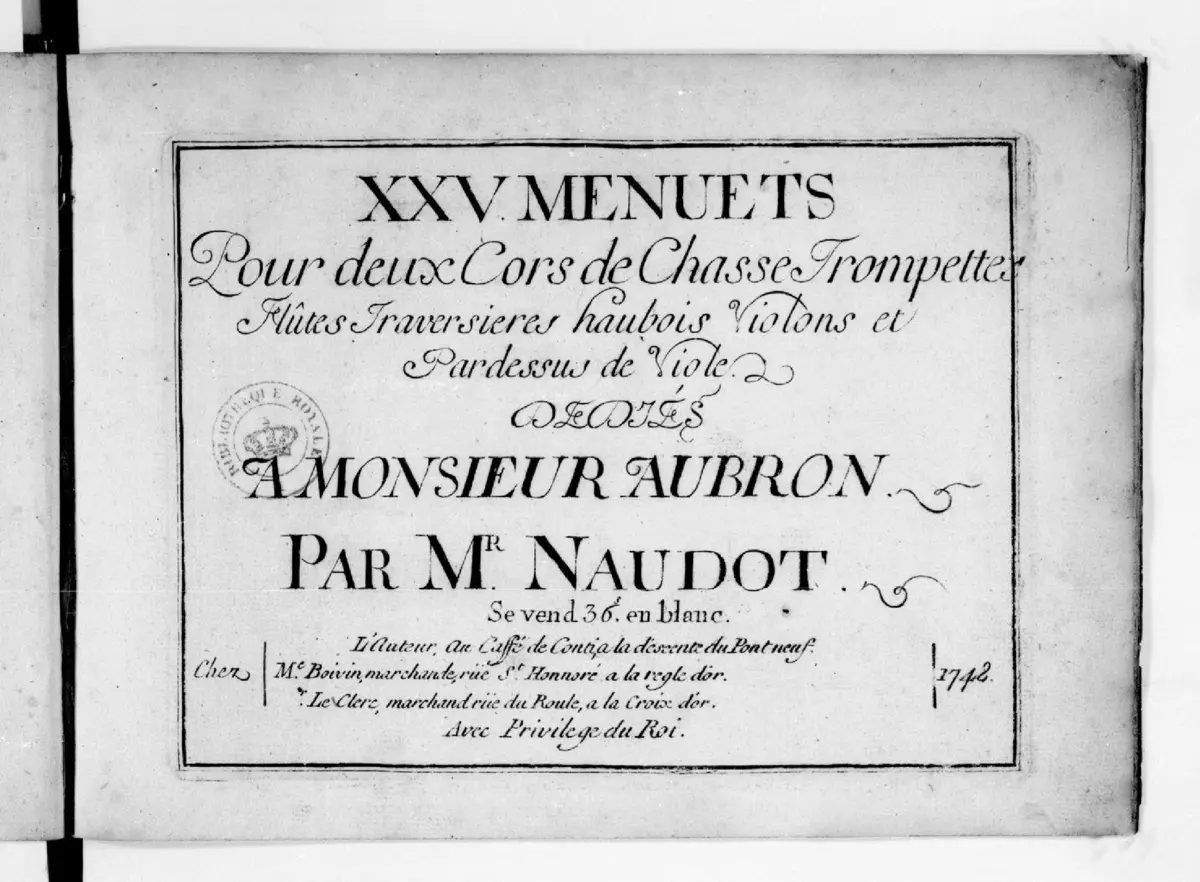 XXV. MENUETS
Pour deux Cors de Chasse Trompettes
Flûtes Traversieres haubois Violons et
Pardessus de Viole.
DEDIÉS
A MONSIEUR AUBRON.
PAR M.R NAUDOT.
Se vend 36.s en blanc.
L'Auteur, Au Caffé de Conti, a la descente du Pont neuf.
Chez M.e Boivin, marchande, rüe S.t Honnoré a la regle d'or. 1742.
r. Le Clerc, marchand rüe du Roule, a la Croix d'or.
Avec Privilege du Roi.
BIBLIOTHEQUE ROYALE